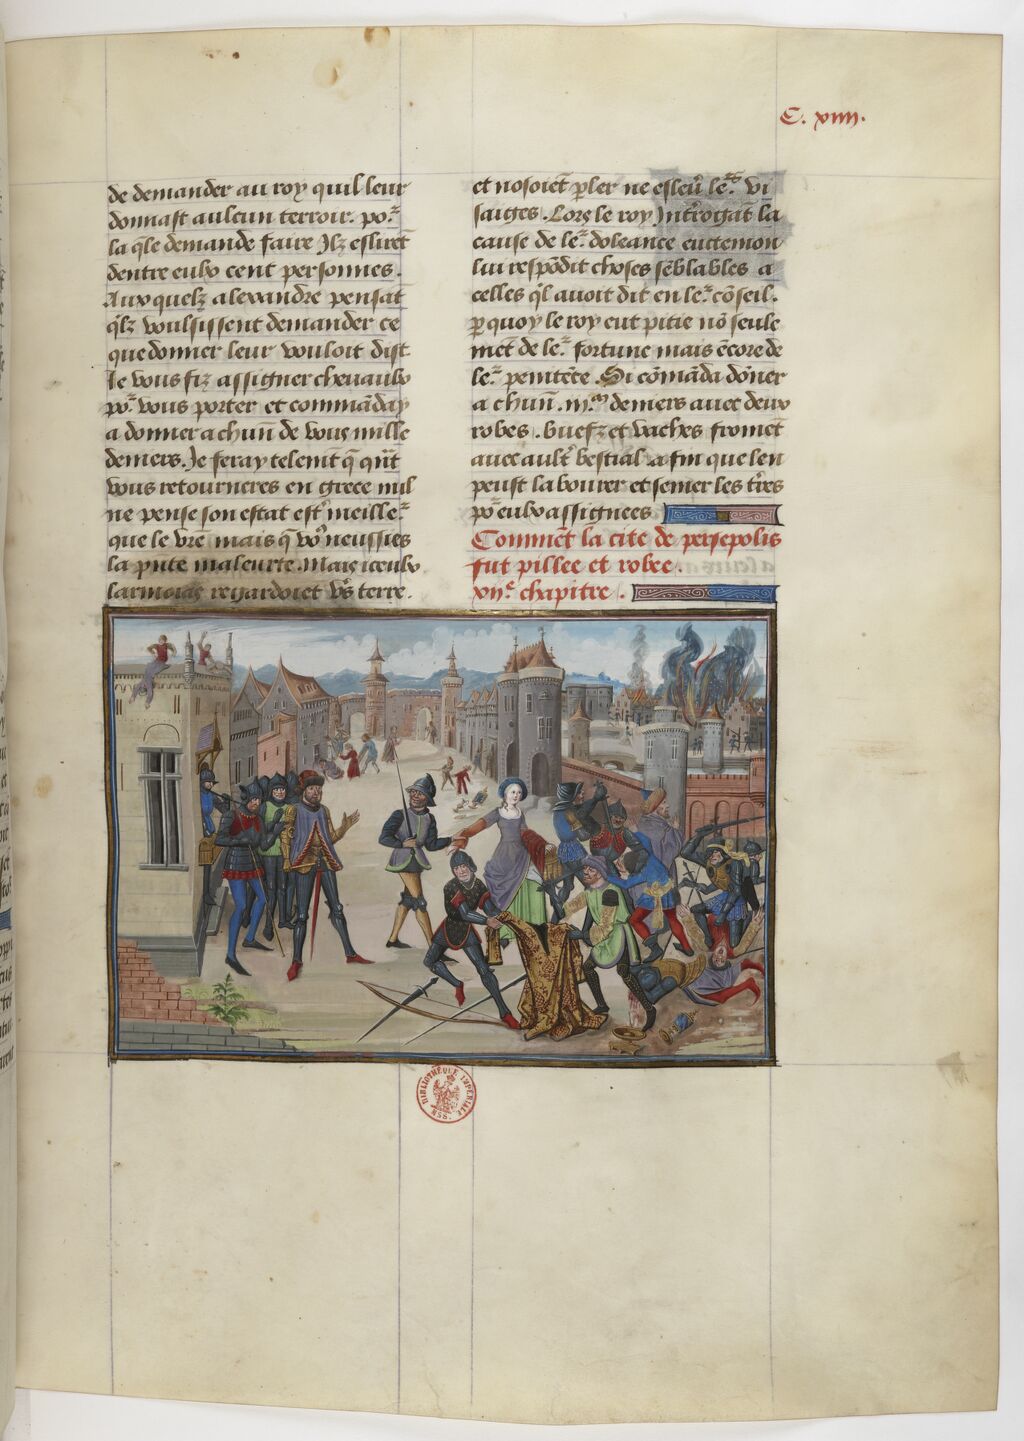 C. xiiii.
de demander au roy quil leur
donnast aulcun terroir. po.ʳ
la q̄le demande faire Ilz eslirēt
dentre eulx cent personnes.
Aux quelz alexandre pensāt
q̄lz voulsissent demander ce
que donner leur vouloit dist
Je vous fiz assigner cheuaulx
po.ʳ vous porter et commāday
a donner a chūn de vous mille
deniers. Je feray telemēt q̄ q̄nt
vous retourneres en grece nul
ne pense son estat estʳ meille.ʳ
que le vr̄e mais q̄ voˢ neussies
la pn̄te maleurte. Mais iceulx
larmoiās regardoiēt vˢ terre.
et nosoiēt p̄ler ne esleuʳ le.ʳˢ vi
saiges. Lors le roy Intʳrogāt la
cause de le.ʳ doleance euctemon
lui respōdit choses sēblables a
celles q̄l auoit dit en le.ʳ cōseil.
p̄ quoy le roy eut pitie nō seule
mēt de le.ʳ fortune mais ēcore de
le.ʳ penitēce. Si cōmāda dōner
a chūn .iii.ᵐ deniers auec deux
robes. buefz et vaches fromēt
auec aultʳ bestial a fin que len
peust labourer et semer les tr̄es
poʳ eulx assignees
Commēt la cite de persepolis
fut pillee et robee.
xiiᵉ chapitre.
BIBLIOTHÈQUE IMPÉRIALE
MSS.